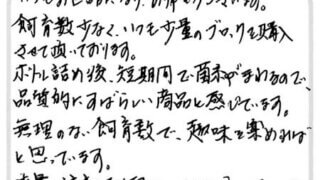 飼育数少なく、いつも少量のブロックを購入
させて頂いております。
ボトル詰め後、短期間で菌がまわるので、
品質的にすばらしい商品と感じています。
無理のない飼育数で、趣味を楽めれば
と思っています。